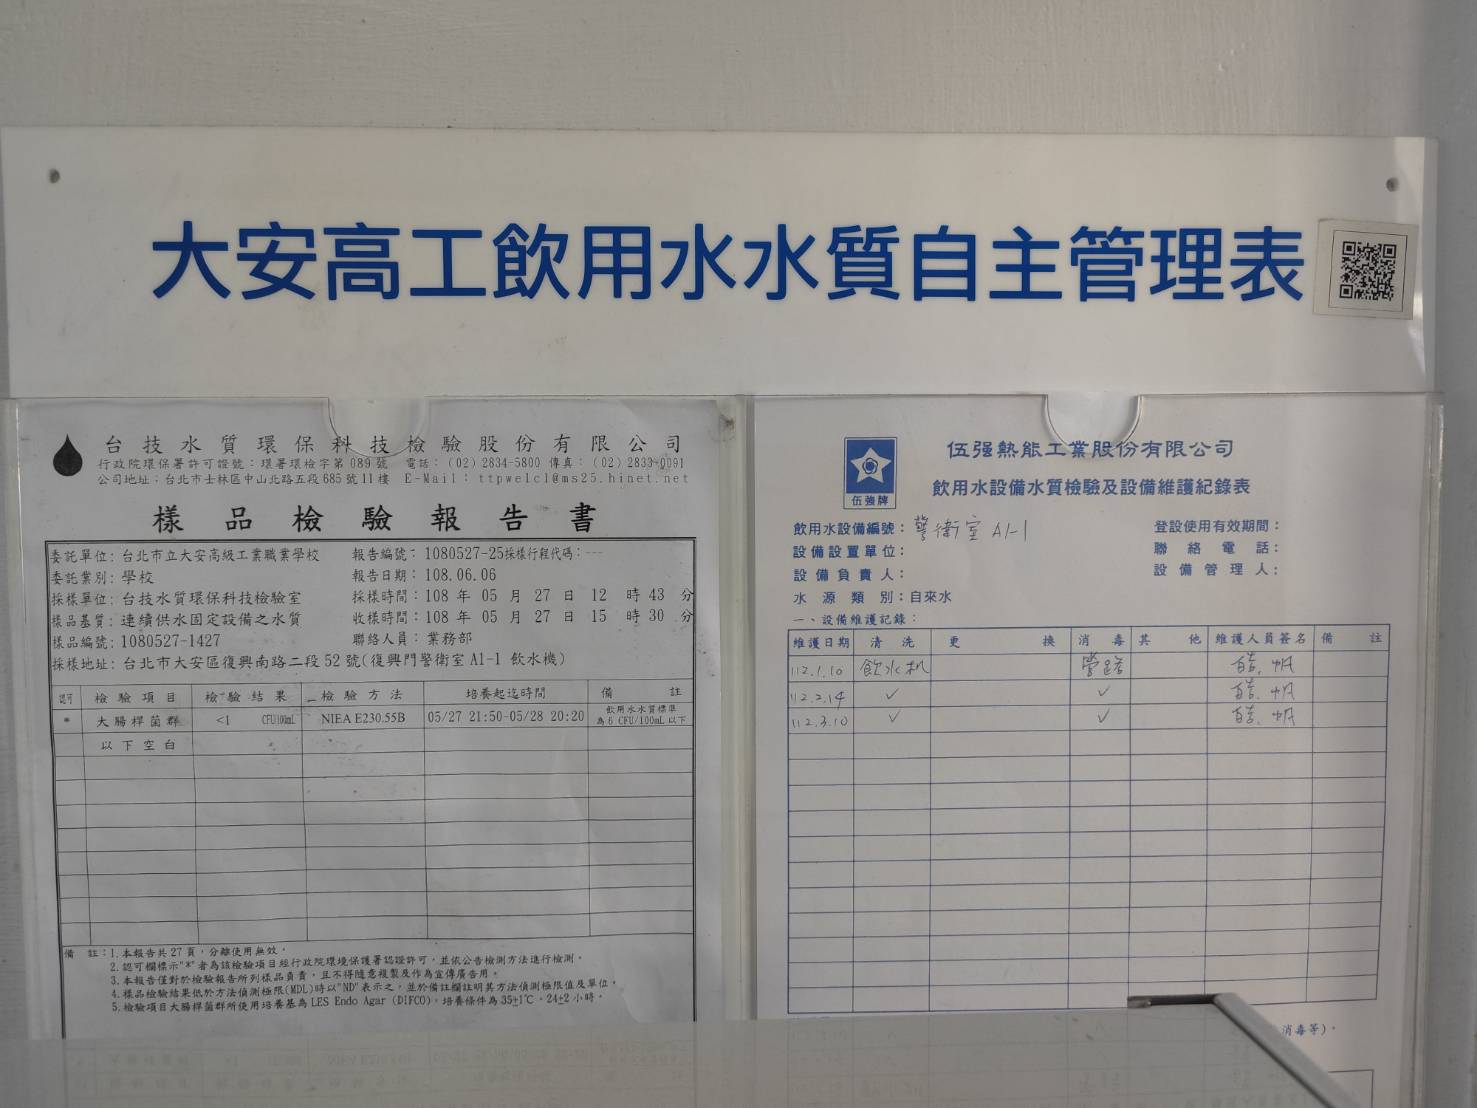 大安高工飲用水水質自主管理表
台技水質環保科技檢驗股份有限公司
行政院環保署許可證號：環署環檢字第089號 電話：(02)2834-5800 傳真：(02)2833-0091
公司地址：台北市士林區中山北路五段685號11樓 E-Mail：ttpwelcl@ms25.hinet.net
樣品檢驗報告書
委託單位：台北市立大安高級工業職業學校 報告編號：1080527-25採樣行程代碼：---
委託業別：學校 報告日期：108.06.06
採樣單位：台技水質環保科技檢驗室 採樣時間：108 年 05 月 27 日 12 時 43 分
樣品基質：連續供水固定設備之水質 收樣時間：108 年 05 月 27 日 15 時 30 分
樣品編號：1080527-1427 聯絡人員：業務部
採樣地址：台北市大安區復興南路二段52號(復興門警衛室A1-1 飲水機)
認可 檢驗項目 檢驗結果 檢驗方法 培養起迄時間 備註
* 大腸桿菌群 <1 CFU/100mL NIEA E230.55B 05/27 21:50-05/28 20:20 飲用水水質標準
為6 CFU/100mL以下
以下空白
備註：1.本報告共27頁，分離使用無效。
2.認可欄標示"*"者為該檢驗項目經行政院環境保護署認證許可，並依公告檢測方法進行檢測。
3.本報告僅對於檢驗報告所列樣品負責，且不得隨意複製及作為宣傳廣告用。
4.樣品檢驗結果低於方法偵測極限(MDL)時以"ND"表示之，並於備註欄註明其方法偵測極限值及單位。
5.檢驗項目大腸桿菌群所使用培養基為LES Endo Agar (DIFCO)，培養條件為35±1℃，24±2小時。
伍強牌
伍強熱能工業股份有限公司
飲用水設備水質檢驗及設備維護紀錄表
飲用水設備編號：警衛室 A1-1 登設使用有效期間：
設備設置單位： 聯絡電話：
設備負責人： 設備管理人：
水源類別：自來水
一、設備維護記錄：
維護日期 清洗 更換 消毒 其他 維護人員簽名 備註
112.1.10 飲水机 管路
112.2.14 ✓ ✓
112.3.10 ✓ ✓
消毒等)。